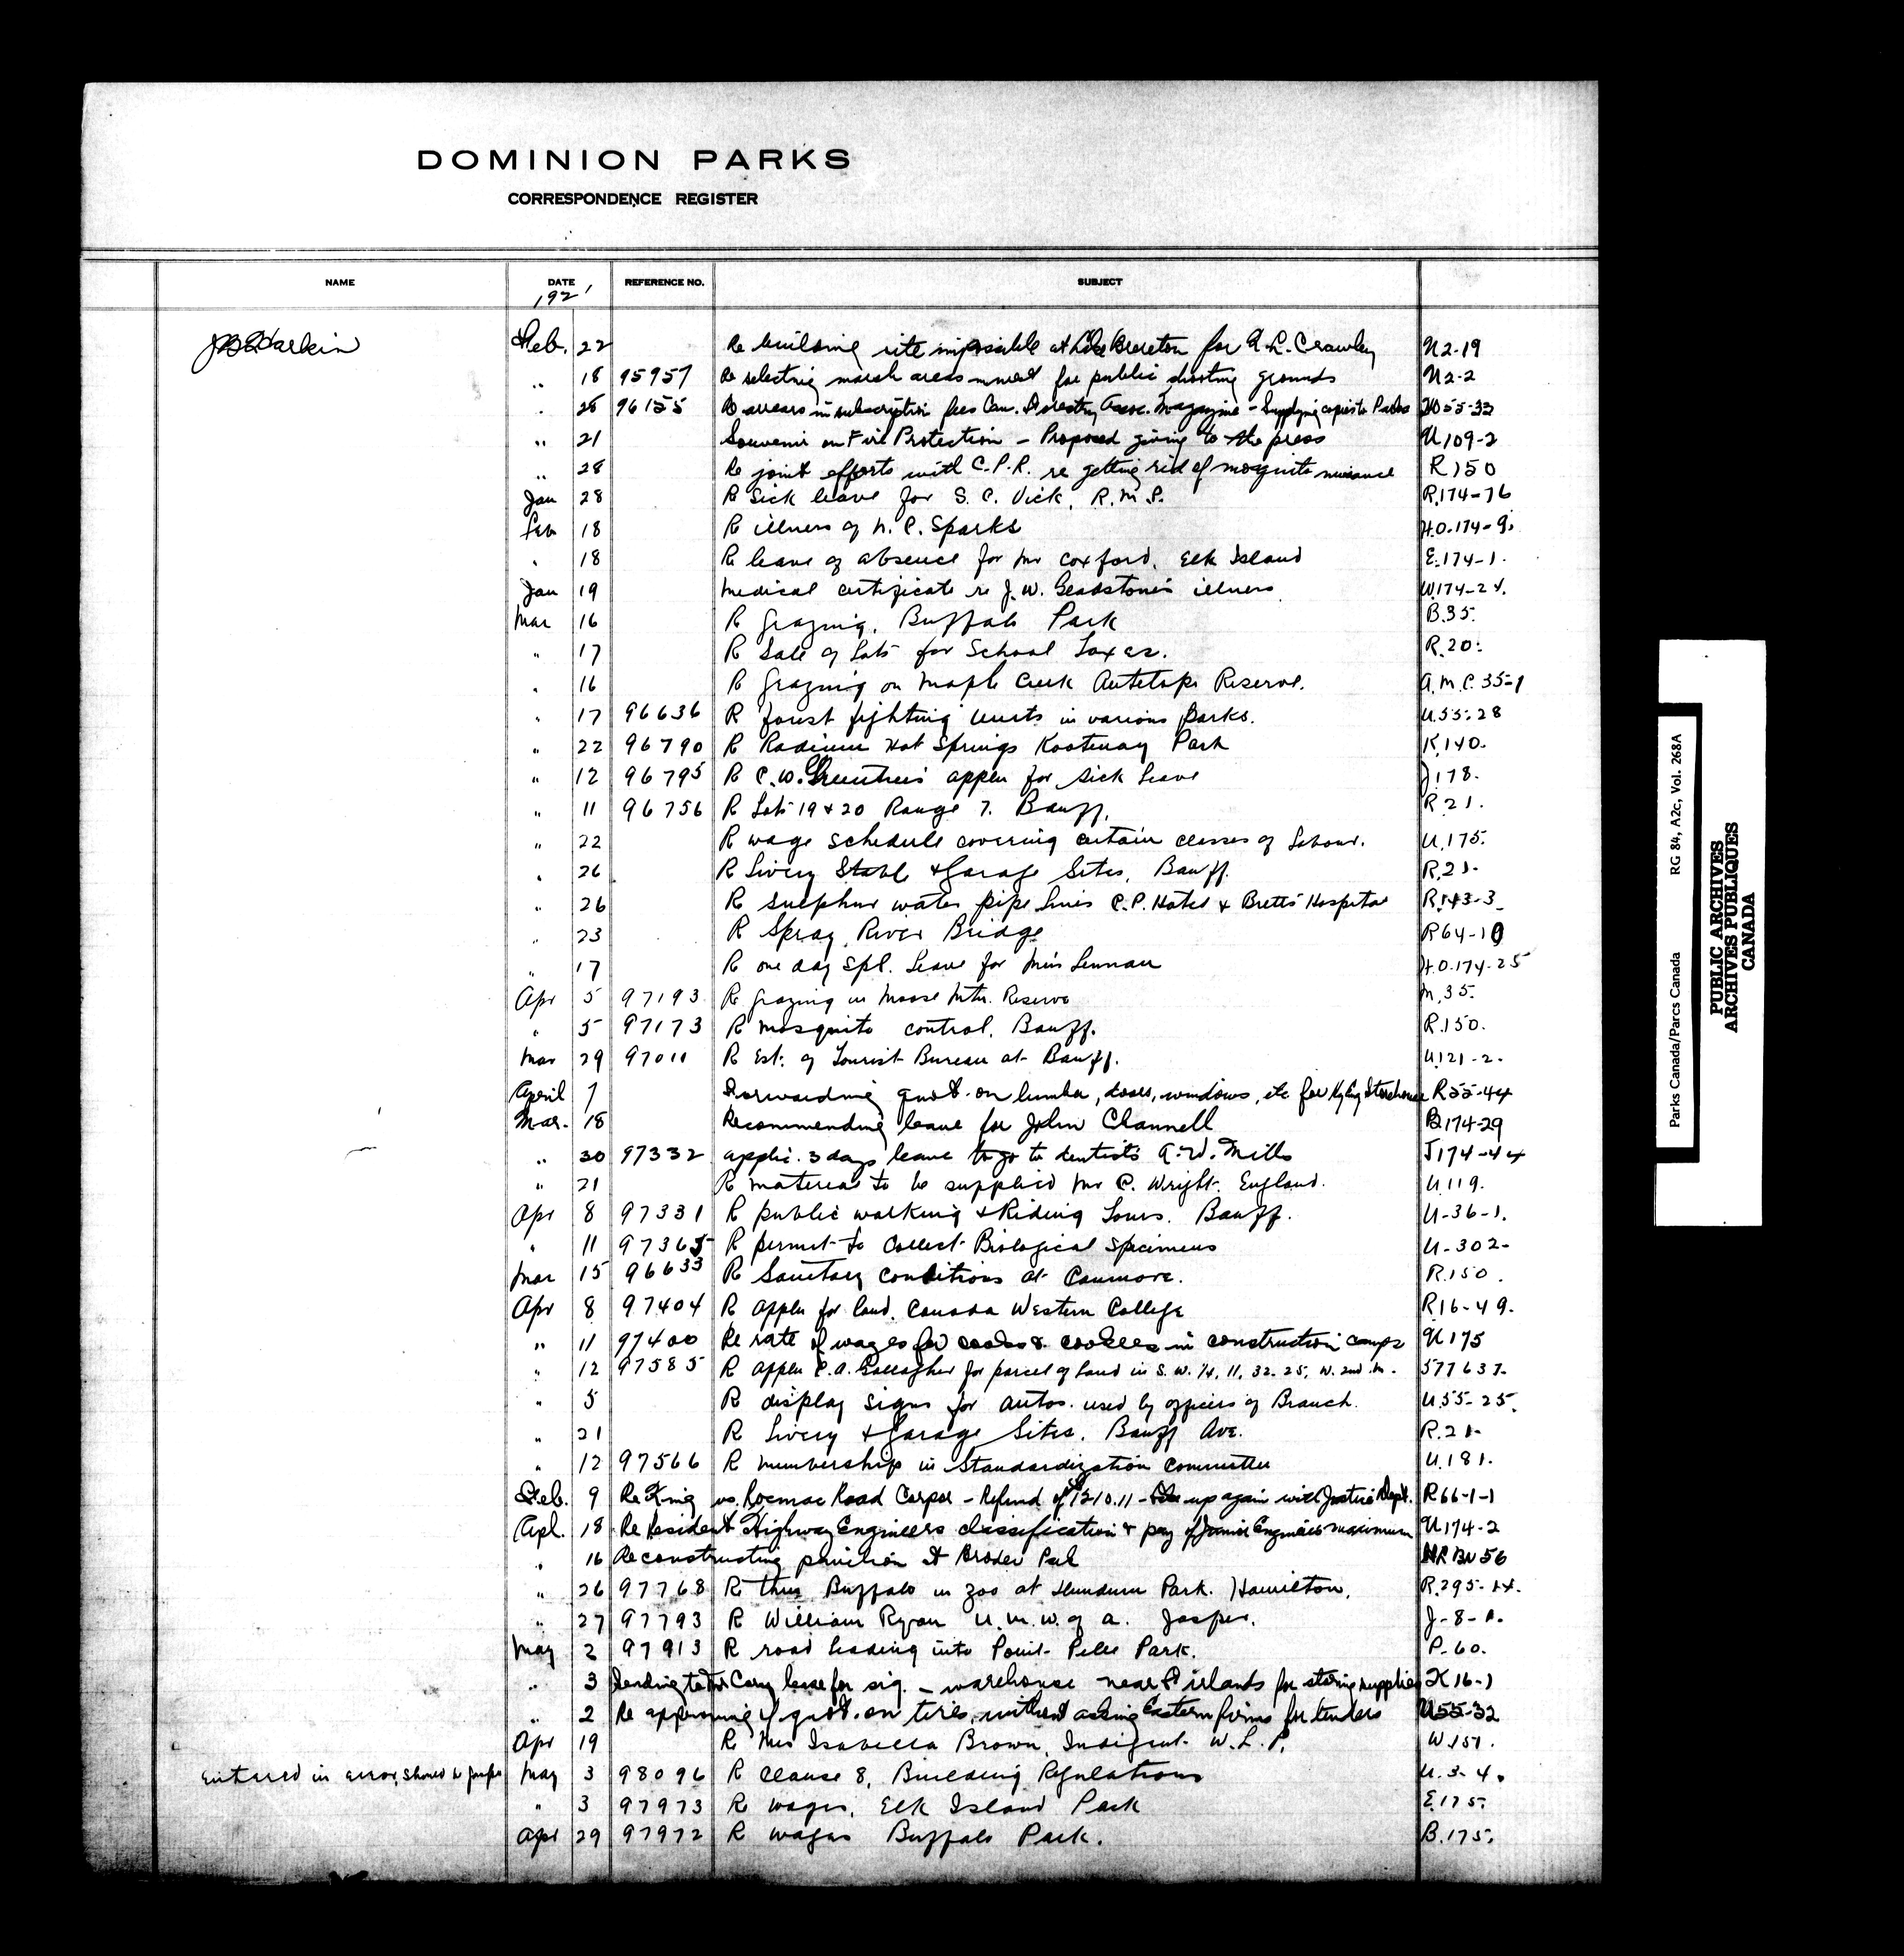 DOMINION PARKS
CORRESPONDENCE REGISTER
NAME DATE REFERENCE NO. SUBJECT
1921
J B Harkin Feb. 22 Re building site impossible at Lake Brereton for A. L. Crawley U2-19
" 18 95957 Re selecting marsh areas for public shooting grounds U2-2
" 25 96155 Re arrears in subscription fees Can. Forestry Assoc. Magazine - Supplying copies to Parks HO55-33
" 21 Souvenir on Fire Protection - Proposed giving to the press U109-2
" 28 Re joint efforts with C.P.R. re getting rid of mosquito nuisance R150
Jan 28 R Sick leave for S. C. Vick, R.M.P. R.174-76
Feb 18 R illness of N. C. Sparks H.O.174-9.
" 18 R leave of absence for Mr Coxford, Elk Island E.174-1.
Jan 19 Medical certificate re J. W. Gladstone's illness W.174-24.
Mar 16 R Grazing, Buffalo Park B.35.
" 17 R Sale of Lots for School Taxes. R.20.
" 16 R Grazing on Maple Creek Antelope Reserve. A.M.C. 35-1
" 17 96636 R forest fighting units in various parks. U.55-28
" 22 96790 R Radium Hot Springs Kootenay Park K.140.
" 12 96795 R C. W. Greentree's appln for sick leave J178.
" 11 96756 R Lots 19 & 20 Range 7. Banff. R.21.
" 22 R wage schedule covering certain classes of labour. U.175.
" 26 R Livery Stable & Garage Sites, Banff. R.21.
" 26 R sulphur water pipe lines C.P. Hotel & Bretts Hospital R.143-3
" 23 R Spray River Bridge R64-10
" 17 R one day spl. leave for Miss Lennan H.O.174-25
Apr 5 97193 R grazing in Moose Mtn. Reserve M.35.
" 5 97173 R mosquito control, Banff. R.150.
Mar 29 97011 R Est. of Tourist Bureau at Banff. U.121-2.
April 7 Forwarding quot. on lumber, doors, windows, etc for Storehouse R55-44
Mar. 18 Recommending leave for John Channell B174-29
" 30 97332 applic. 3 days leave to go to dentist's A. W. Mills J174-44
" 21 R material to be supplied Mr C. Wright. England. U.119.
Apr 8 97331 R public walking & Riding Tours. Banff. U-36-1.
" 11 97365 R permit to Collect Biological Specimens U-302-
Mar 15 96633 R Sanitary conditions at Canmore. R.150.
Apr 8 97404 R appln for land, Canada Western College R16-49.
" 11 97400 Re rate of wages for cooks & cookees in construction camps U175
" 12 97585 R appln C. A. Gallagher for parcel of land in S.W. 1/4, 11, 32-25, W. 2nd M. 577637.
" 5 R display signs for autos. used by officers of Branch. U.55-25.
" 21 R Livery & Garage Sites, Banff Ave. R.21.
" 12 97566 R membership in Standardization Committee U.181.
Feb. 9 Re King vs. Rocmac Road Corpor - Refund of $1210.11 - up again with Justice Dept. R66-1-1
Apl. 18 Re Resident Highway Engineers classification & pay of Junior Engineers maximum U174-2
" 16 Re constructing pavilion at Broder Park 56
" 26 97768 R three Buffalo in zoo at Dundurn Park. Hamilton. R.295-14.
" 27 97793 R William Ryan U.M.W. of A. Jasper. J-8-1.
May 2 97913 R road leading into Point Pelee Park. P-60.
" 3 Sending to Mr Cory lease for sig. - warehouse near Firlands for storing supplies K16-1
" 2 Re approving of quot. on tires, without asking Eastern firms for tenders U55-32
Apr 19 R Mrs Isabella Brown, Indigent W.L.P. W.151.
Entered in error, should be May 3 98096 R Clause 8, Building Regulations U.3-4.
" 3 97973 R wages, Elk Island Park E.175.
Apr 29 97972 R wages Buffalo Park. B.175.
Parks Canada/Parcs Canada RG 84, A2c, Vol. 268A
PUBLIC ARCHIVES
ARCHIVES PUBLIQUES
CANADA